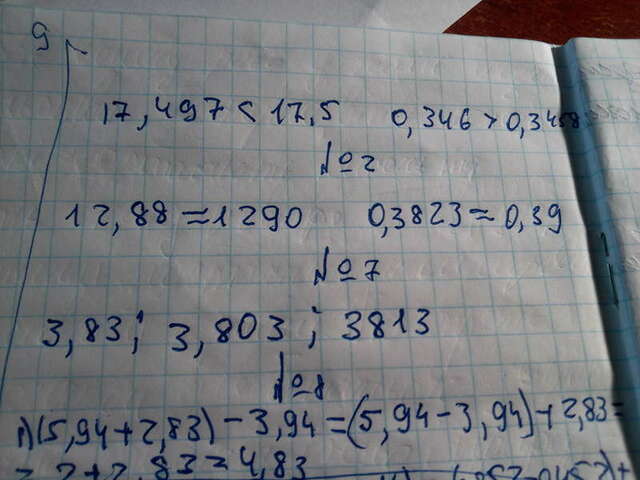 9
17,497 < 17,5 0,346 > 0,3458
№2
12,88 ≈ 1290 0,3823 ≈ 0,39
№7
3,83; 3,803; 3813
№8
1) (5,94 + 2,83) - 3,94 = (5,94 - 3,94) + 2,83 =
= 2 + 2,83 = 4,83